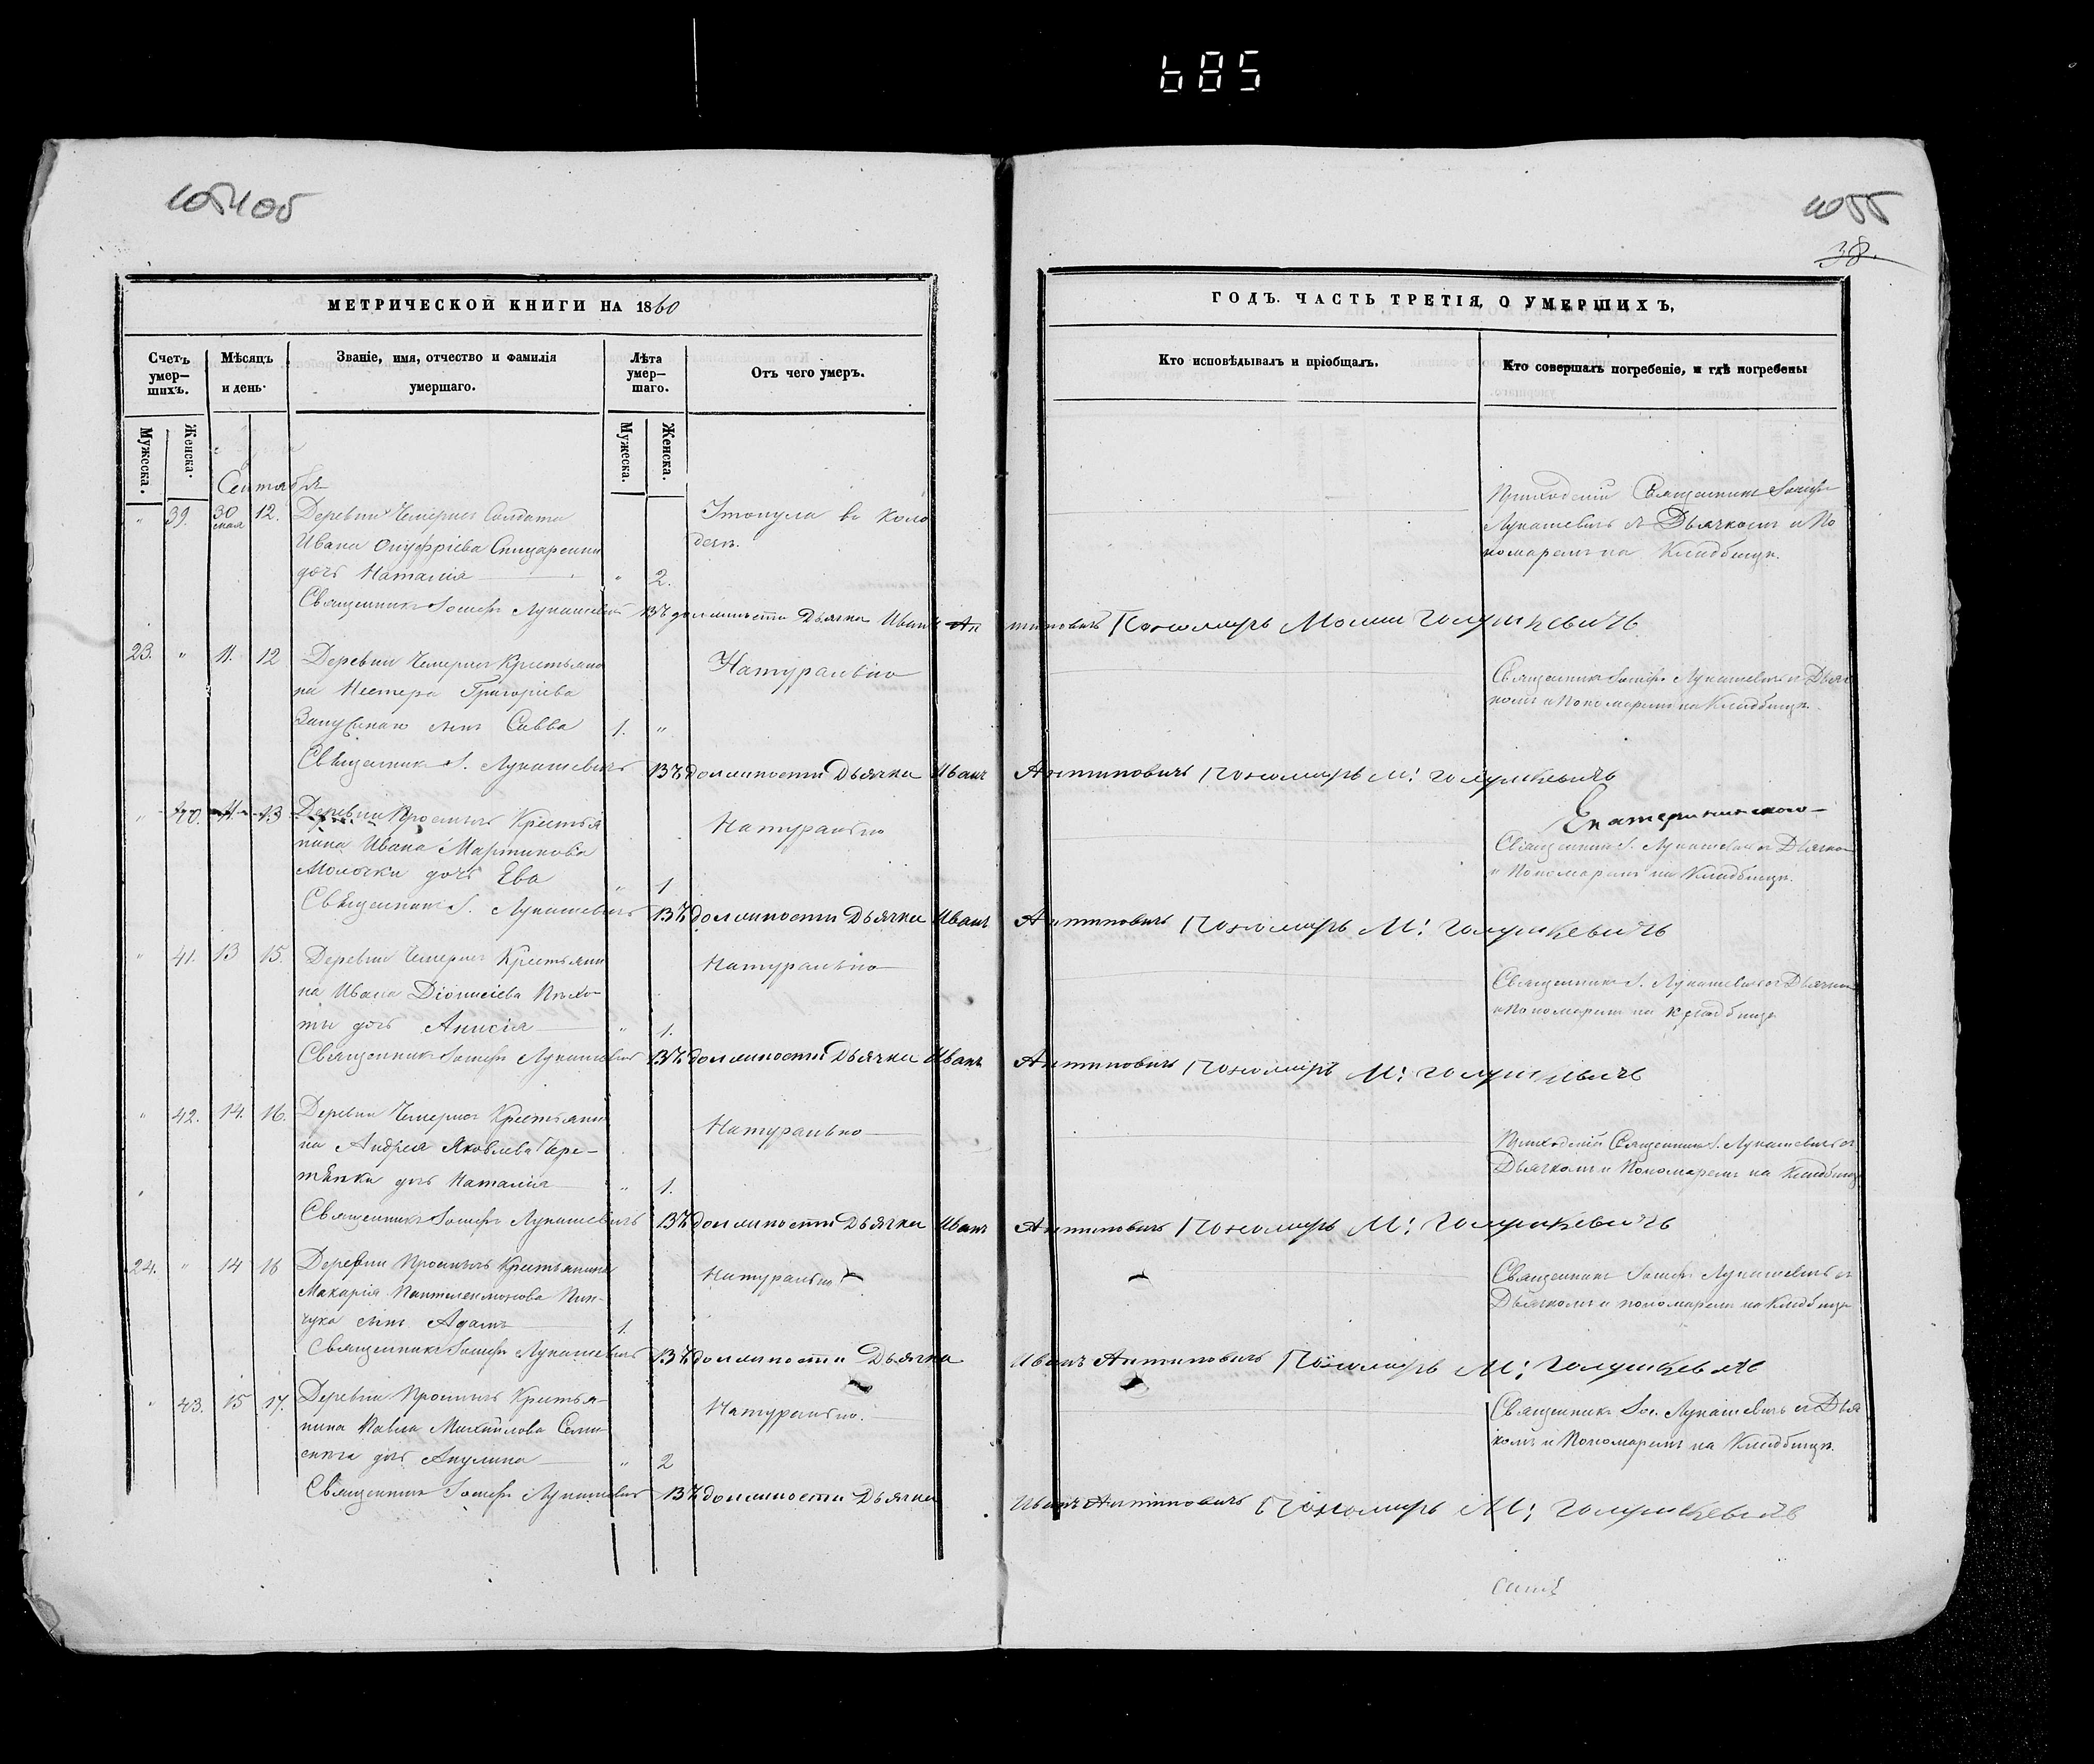 685
105 105
1055
38.
МЕТРИЧЕСКОЙ КНИГИ НА 1860
ГОДЪ. ЧАСТЬ ТРЕТІЯ, О УМЕРШИХЪ,
Счетъ умер–шихъ.
Мѣсяцъ и день·
Званіе, имя, отчество и фамилія умершаго.
Лѣта умер–шаго.
Отъ чего умеръ.
Кто исповѣдывалъ и пріобщалъ.
Кто совершалъ погребеніе, и гдѣ погребены
Мужеска.
Женска.
Мужеска.
Женска.
Сентября
" 39. 30 мая 12. Деревни Чемернъ Солдата
Ивана Онуфріева
дочь Наталія " 2.
Утонула въ коло
дезѣ.
Приходскій Священникъ Іосифъ
Лукашевичъ съ Дьячкомъ и По
номаремъ на Кладбищѣ.
Священникъ Іосифъ Лукашевичъ Въ должности Дьячка Иванъ Антиповичъ Пономарь
23. " 11. 12 Деревни Чемернъ Крестьяни
на Нестера Григоріева
сынъ Савва 1. "
Натурально
Священникъ Іосифъ Лукашевичъ съ Дьяч
комъ и Пономаремъ на Кладбищѣ.
Священникъ І. Лукашевичъ Въ должности Дьячка Иванъ Антиповичъ Пономарь М:
" 40. 11. 13 Деревни Крестья
нина Ивана Мартинова
Молочки дочь Ева " 1
Натурально
Екатерининскаго
Священникъ І. Лукашевичъ съ Дьячкомъ
и Пономаремъ на Кладбищѣ.
Священникъ І. Лукашевичъ Въ должности Дьячка Иванъ Антиповичъ Пономарь М:
" 41. 13 15. Деревни Чемернъ Крестьяни
на Ивана Діонисіева Пѣхо–
ты дочь Анисія " 1.
Натурально
Священникъ І. Лукашевичъ съ Дьячкомъ
и Пономаремъ на кладбищѣ
Священникъ Іосифъ Лукашевичъ Въ должности Дьячка Иванъ Антиповичъ Пономарь М:
" 42. 14. 16. Деревни Чемернъ Крестьяни
на Андрея Яковлева
дочь Наталія " 1.
Натурально
Приходскій Священникъ І. Лукашевичъ съ
Дьячкомъ и Пономаремъ на Кладбищѣ
Священникъ Іосифъ Лукашевичъ Въ должности Дьячка Иванъ Антиповичъ Пономарь М:
24. " 14 16 Деревни Крестьянина
Макарія Пантелеимонова Пин–
чука сынъ Адамъ 1.
Натурально
Священникъ Іосифъ Лукашевичъ съ
Дьячкомъ и пономаремъ на Кладбищѣ
Священникъ Іосифъ Лукашевичъ Въ должности Дьячка Иванъ Антиповичъ Пономарь М:
" 43. 15 17. Деревни Крестья–
нина Павла Михайлова
дочь Акулина " 2
Натурально.
Священникъ Іос. Лукашевичъ съ Дья
комъ и Пономаремъ на Кладбищѣ.
Священникъ Іосифъ Лукашевичъ Въ должности Дьячка Иванъ Антиповичъ Пономарь М: